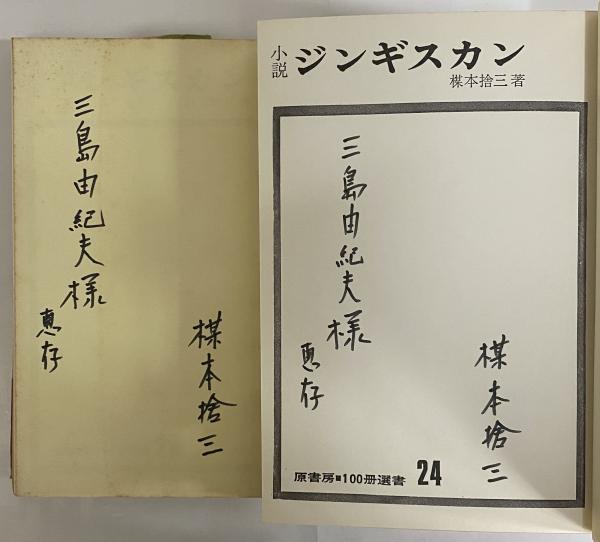 三島由紀夫様
恵存
楳本捨三
小説 ジンギスカン
楳本捨三著
三島由紀夫様
恵存
楳本捨三
原書房■100冊選書 24